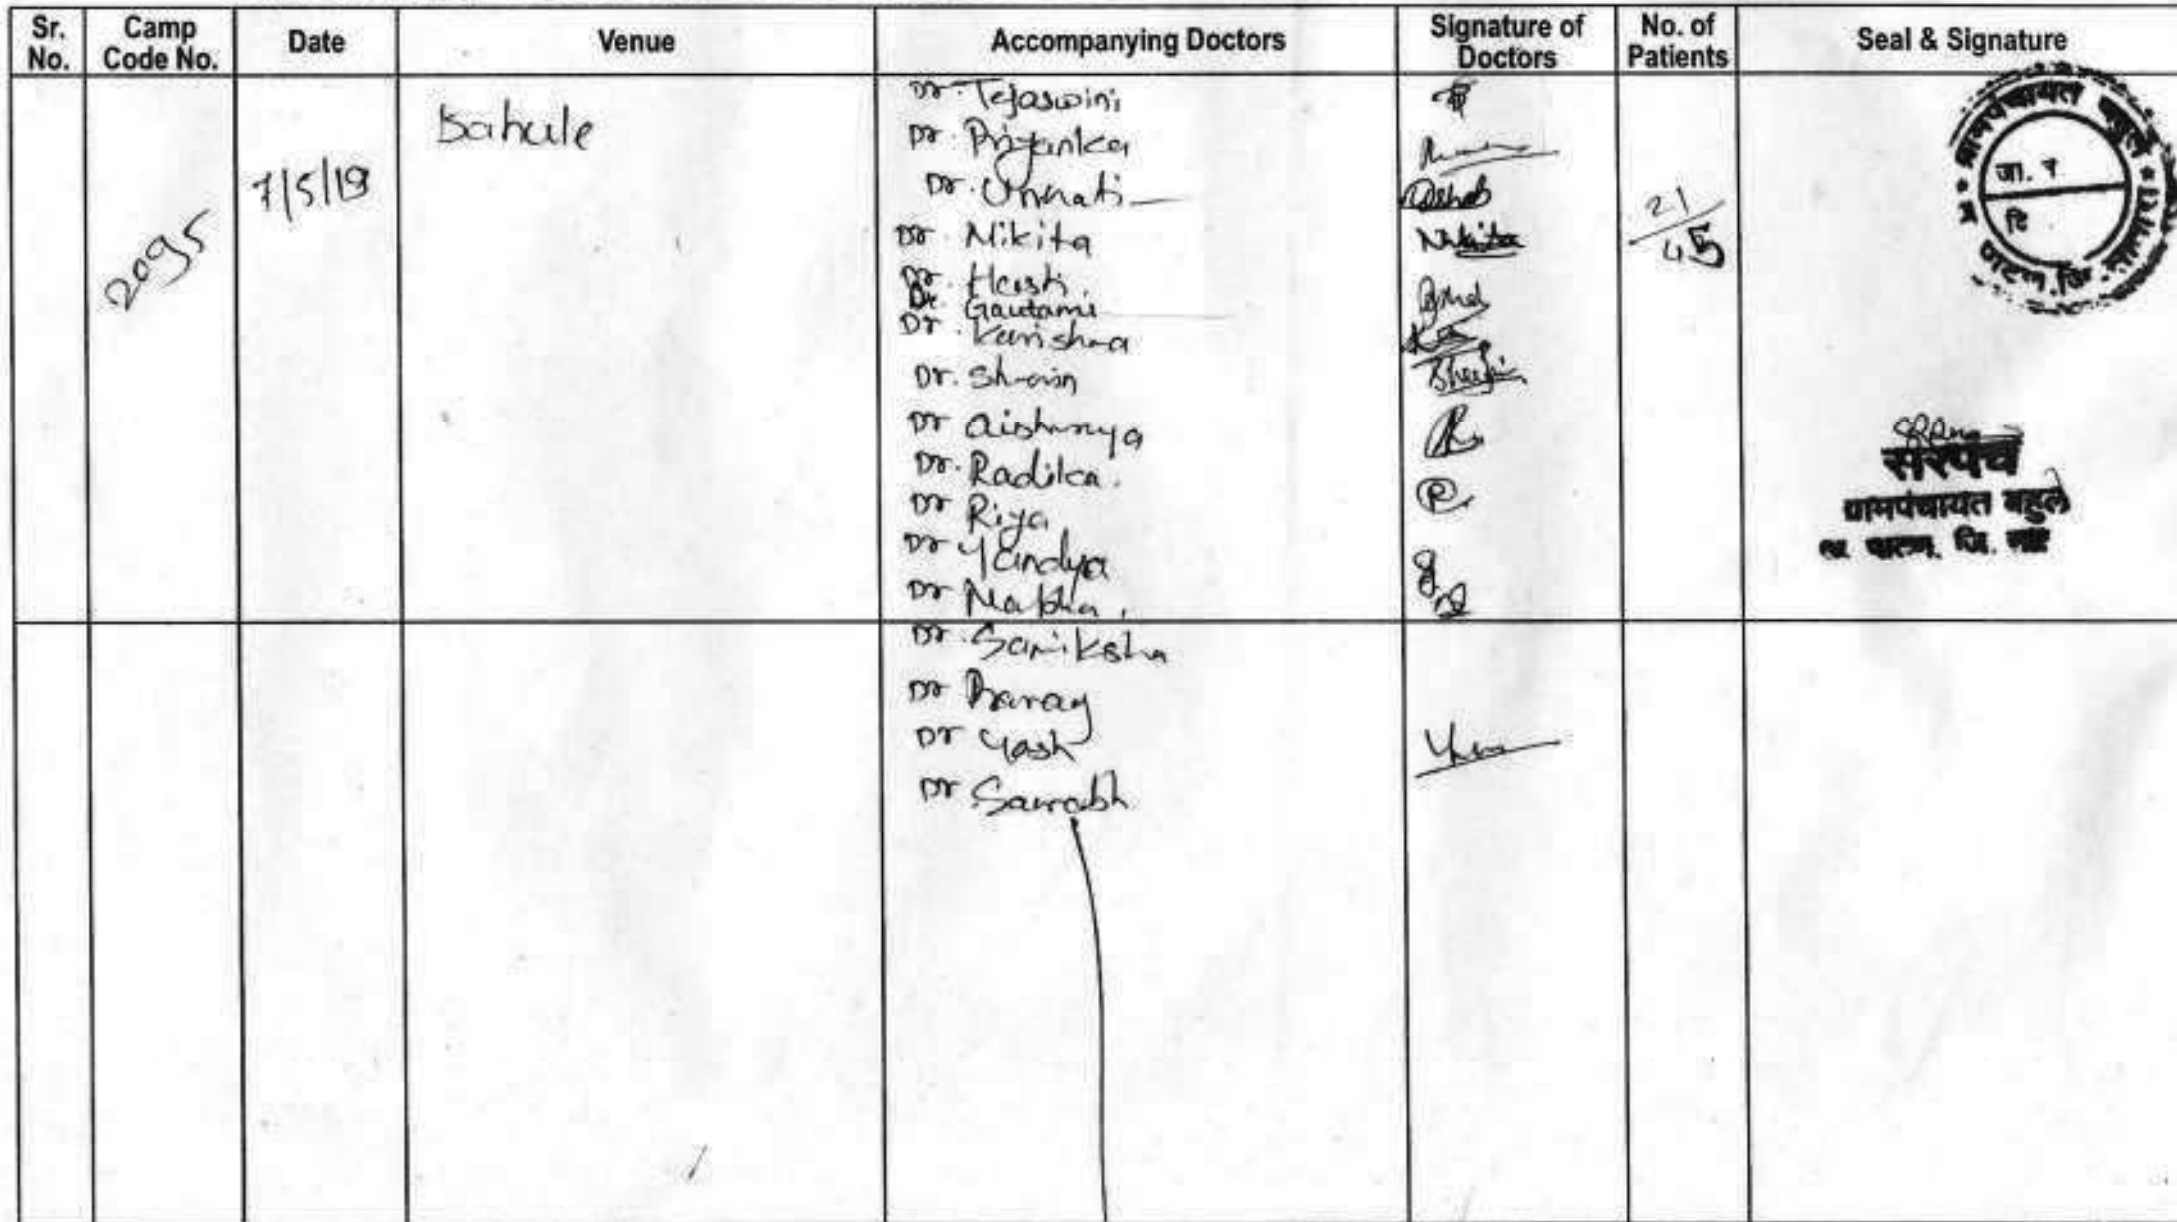 Sr. No. Camp Code No. Date Venue Accompanying Doctors Signature of Doctors No. of Patients Seal & Signature
2095 7/5/19 Bahule
Dr. Tejaswini
Dr. Priyanka
Dr. Unnati
Dr. Nikita Nikita
Dr.
Dr. Gautami
Dr. Karishma
Dr.
Dr Aishwarya
Dr. Radhika.
Dr Riya
Dr
Dr
21/45
ग्रामपंचायत बहुले
जा. नं
दि.
सरपंच
ग्रामपंचायत बहुले
पाटण, जि.
Dr. Samiksha
Dr
Dr Yash
Dr Saurabh